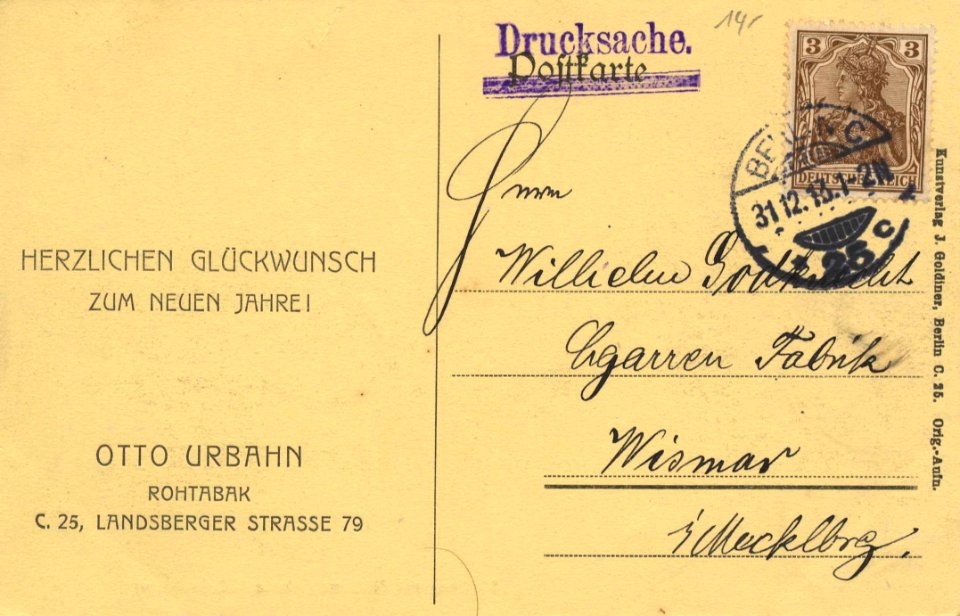 14,-
Drucksache.
Postkarte
3 3
DEUTSCHES REICH
BERLIN C
31.12.13.1-2N
* 25 c
HERZLICHEN GLÜCKWUNSCH
ZUM NEUEN JAHRE!
OTTO URBAHN
ROHTABAK
C. 25, LANDSBERGER STRASSE 79
Herrn
Wilhelm
Cigarren Fabrik
Wismar
i/Mecklbrg.
Kunstverlag J. Goldiner, Berlin C. 25. Orig.-Aufn.